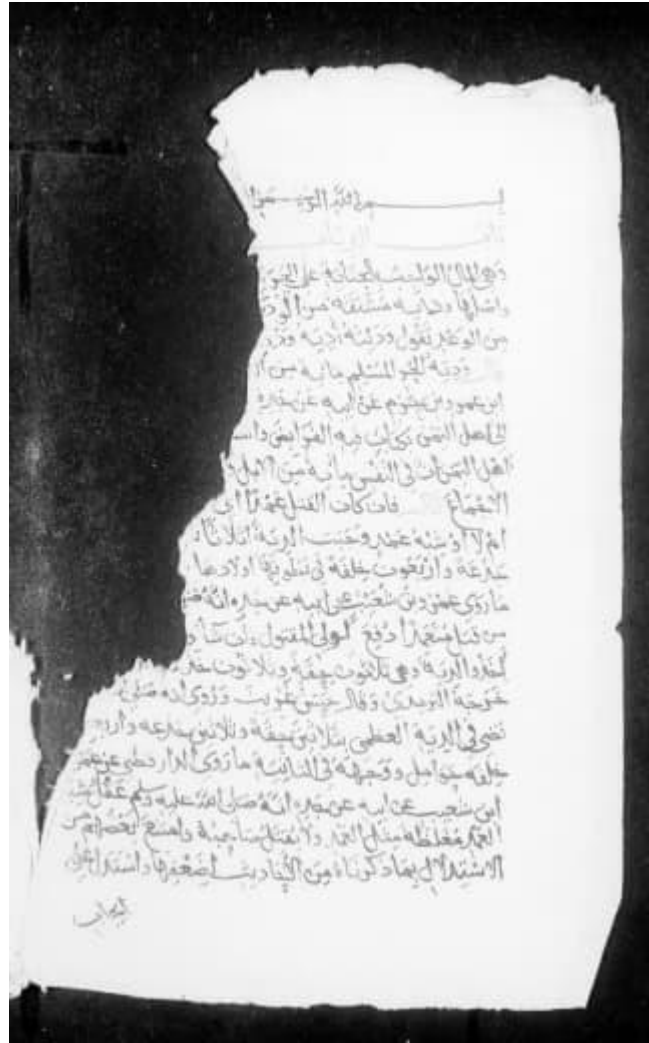 بسم الله الرحمن
وهي المال الواجب بالجناية على الحر
واصلها ودية مشتقة من الودي
من الوعد تقول وديته أديه ودي
ودية الحر المسلم مائة من ا
ابن عمرو بن حزم عن ابيه عن جده
الى اهل اليمن بكتاب فيه الفرائض والسـ
اهل اليمن ان في النفس مائة من الابل و
الاجماع فان كان القتل عمدا اي
ام لا او شبه عمد وجبت الدية اثلاثا
جذعة واربعون خلفة في بطونها اولادها
ما روى عمرو بن شعيب عن ابيه عن جده انه
من قتل متعمدا دفع لولي المقتول فان شاؤ
اخذوا الدية وهي ثلاثون حقة وثلاثون جذ
خرجه الترمذي وقال حسن غريب وروى انه صلى
قضى في الدية العظمى بثلاثين حقة وثلاثين جذعة وار
خلفة حوامل وحجته في الثانية ما روى الدارقطني عن عمرو
ابن شعيب عن ابيه عن جده انه صلى الله عليه وسلم عقل شبه
العمد مغلظة مثل العمد ولا يقتل صاحبه وامتنع بعضهم من
الاستدلال بما ذكرناه من الأحاديث لضعفها واستدل